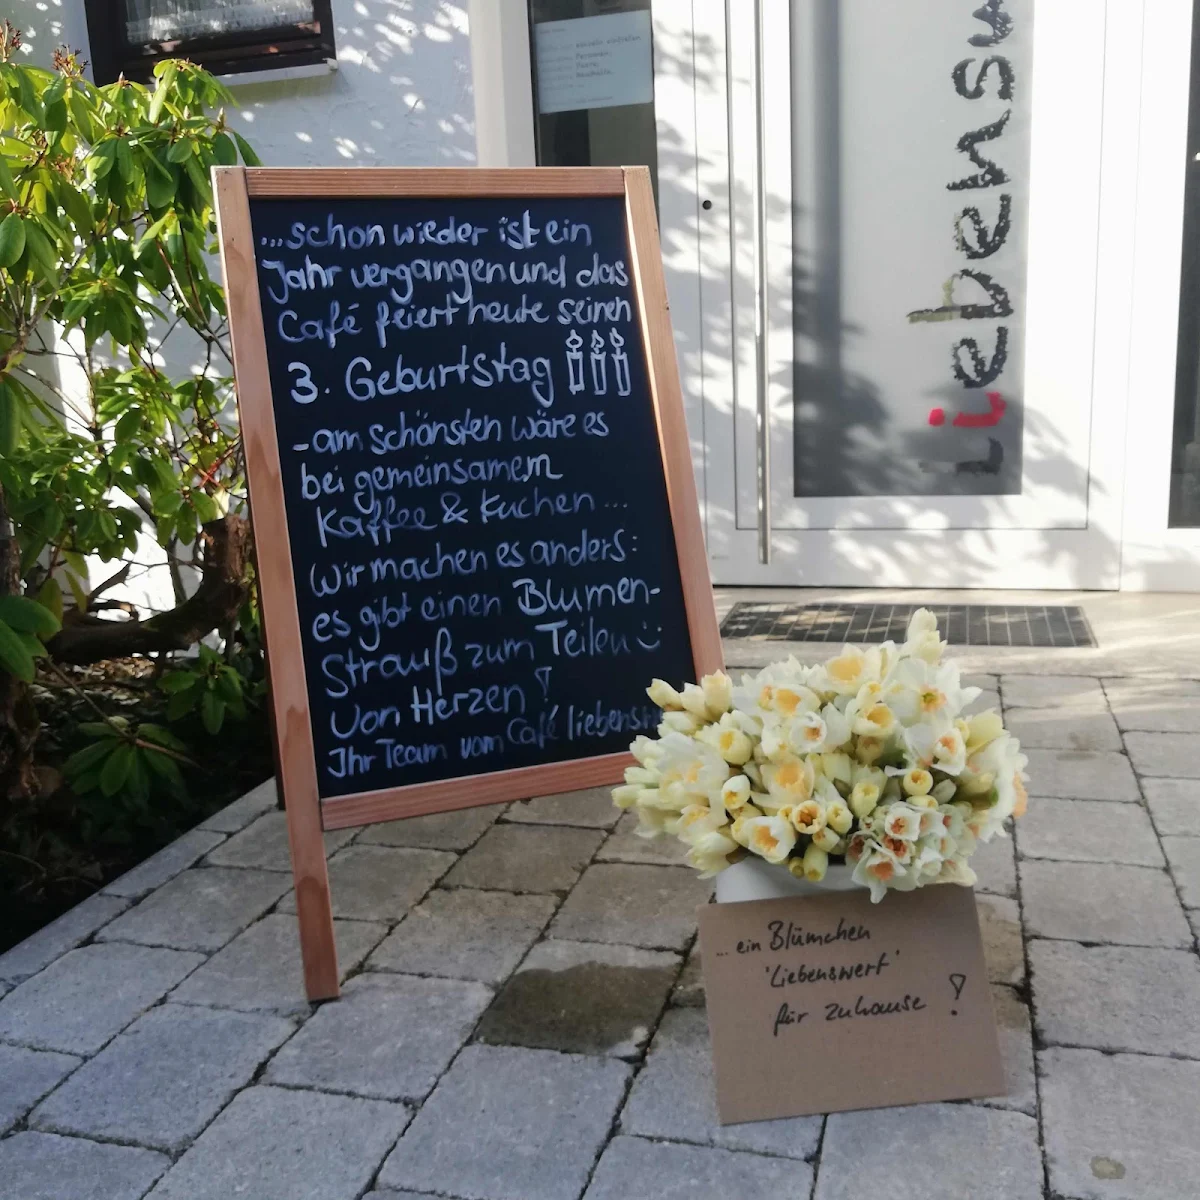 ...schon wieder ist ein
Jahr vergangen und das
Café feiert heute seinen
3. Geburtstag
- am schönsten wäre es
bei gemeinsamem
Kaffee & Kuchen...
Wir machen es anders:
es gibt einen Blumen-
Strauß zum Teilen :)
Von Herzen !
Ihr Team vom Café liebensw
Liebensw
...ein Blümchen
'Liebenswert'
für zuhause !